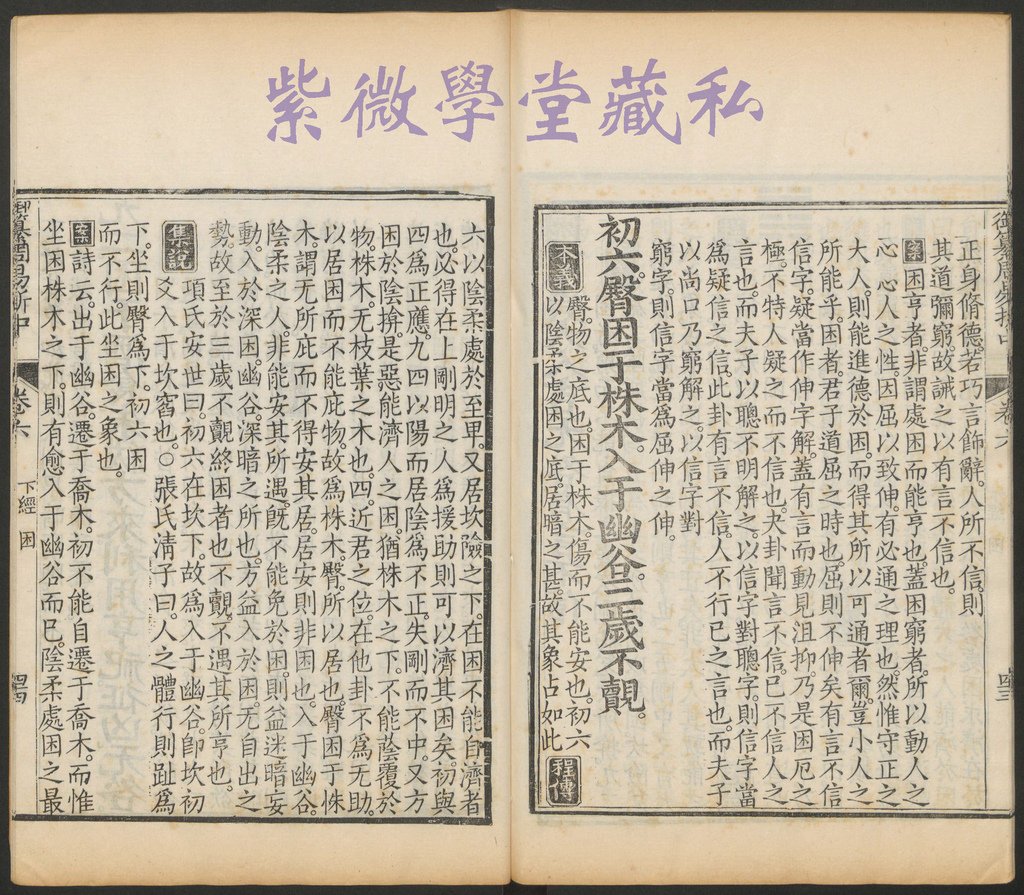 紫微學堂藏私
御纂周易折中
卷六
正身脩德若巧言飾辭。人所不信。則
其道彌窮。故誡之以有言不信也。
案困亨者。非謂處困而能亨也。蓋困窮者。所以動人之
心。心人之性。因屈以致伸。有必通之理也。然惟守正之
大人。則能進德於困。而得其所以可通者爾。豈小人之
所能乎。困者君子道屈之時也。屈則不伸矣。有言不信
信字。疑當作伸字解。蓋有言而動見沮抑。乃是困厄之
極。不特人疑之而不信也。夬卦聞言不信。已不信人之
言也。而夫子以聰不明解之。以信字對聰字。則信字當
爲疑信之信。此卦有言不信。人不行已之言也。而夫子
以尚口乃窮解之。以信字對
窮字。則信字當爲屈伸之伸。
初六。臀困于株木。入于幽谷。三歲不覿。
本義 臀物之底也。困于株木。傷而不能安也。初六
以陰柔處困之底。居暗之甚。故其象占如此
程傳
六以陰柔處於至卑。又居坎險之下。在困不能自濟者
也。必得在上剛明之人爲援助。則可以濟其困矣。初與
四爲正應。九四以陽而居陰爲不正。失剛而不中。又方
困於陰揜。是惡能濟人之困。猶株木之下。不能蔭覆於
物。株木。无枝葉之木也。四。近君之位。在他卦不爲无助。
以居困而不能庇物。故爲株木。臀。所以居也。臀困于株
木。謂无所庇而不得安其居。居安則非困也。入于幽谷。
陰柔之人。非能安其所遇。旣不能免於困。則益迷暗妄
動。入於深困。幽谷。深暗之所也。方益入於困。无自出之
勢。故至於三歲不覿。終困者也。不覿。不遇其所亨也。
集說 項氏安世曰。初六在坎下。故爲入于幽谷。卽坎初
爻入于坎窞也。○張氏清子曰。人之體。行則趾爲
下。坐則臀爲下。初六困
而不行。此坐困之象也。
案詩云。出于幽谷。遷于喬木。初不能自遷于喬木。而惟
坐困株木之下。則有愈入于幽谷而已。陰柔處困之最
御纂周易折中
卷六
下經 困